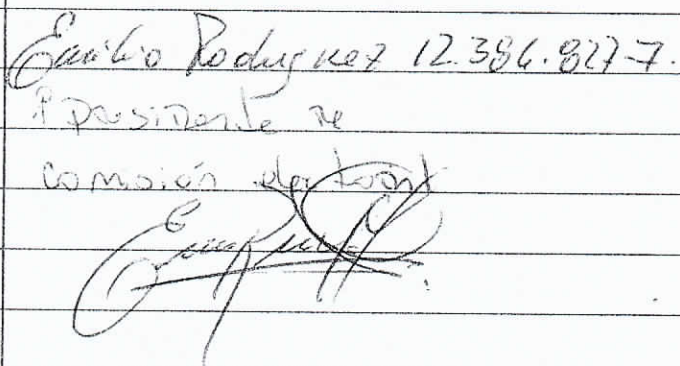 Emilio Rodriguez 12.384.827-7.
Presidente de
comisión electoral